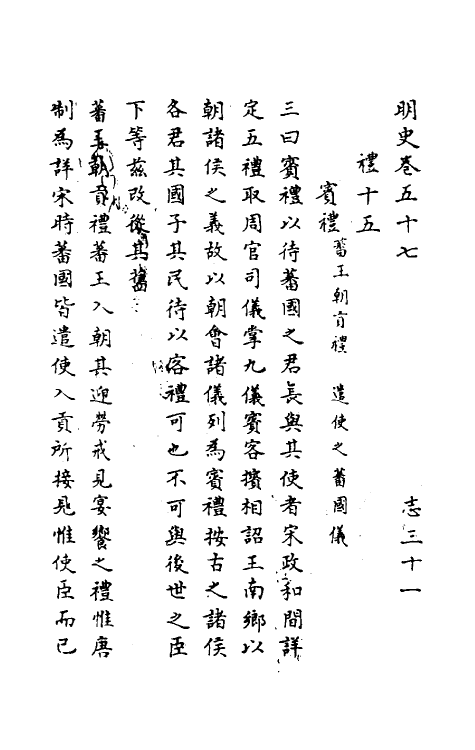 明史卷五十七
志三十一
禮十五
賓禮 蕃王朝貢禮 遣使之蕃國儀
三曰賓禮以待蕃國之君長與其使者宋政和間詳
定五禮取周官司儀掌九儀賓客擯相詔王南鄉以
朝諸侯之義故以朝會諸儀列為賓禮按古之諸侯
各君其國子其民待以客禮可也不可與後世之臣
下等茲改從其舊
蕃王朝貢禮蕃王入朝其迎勞戒見宴饗之禮惟唐
制為詳宋時蕃國皆遣使入貢所接見惟使臣而已